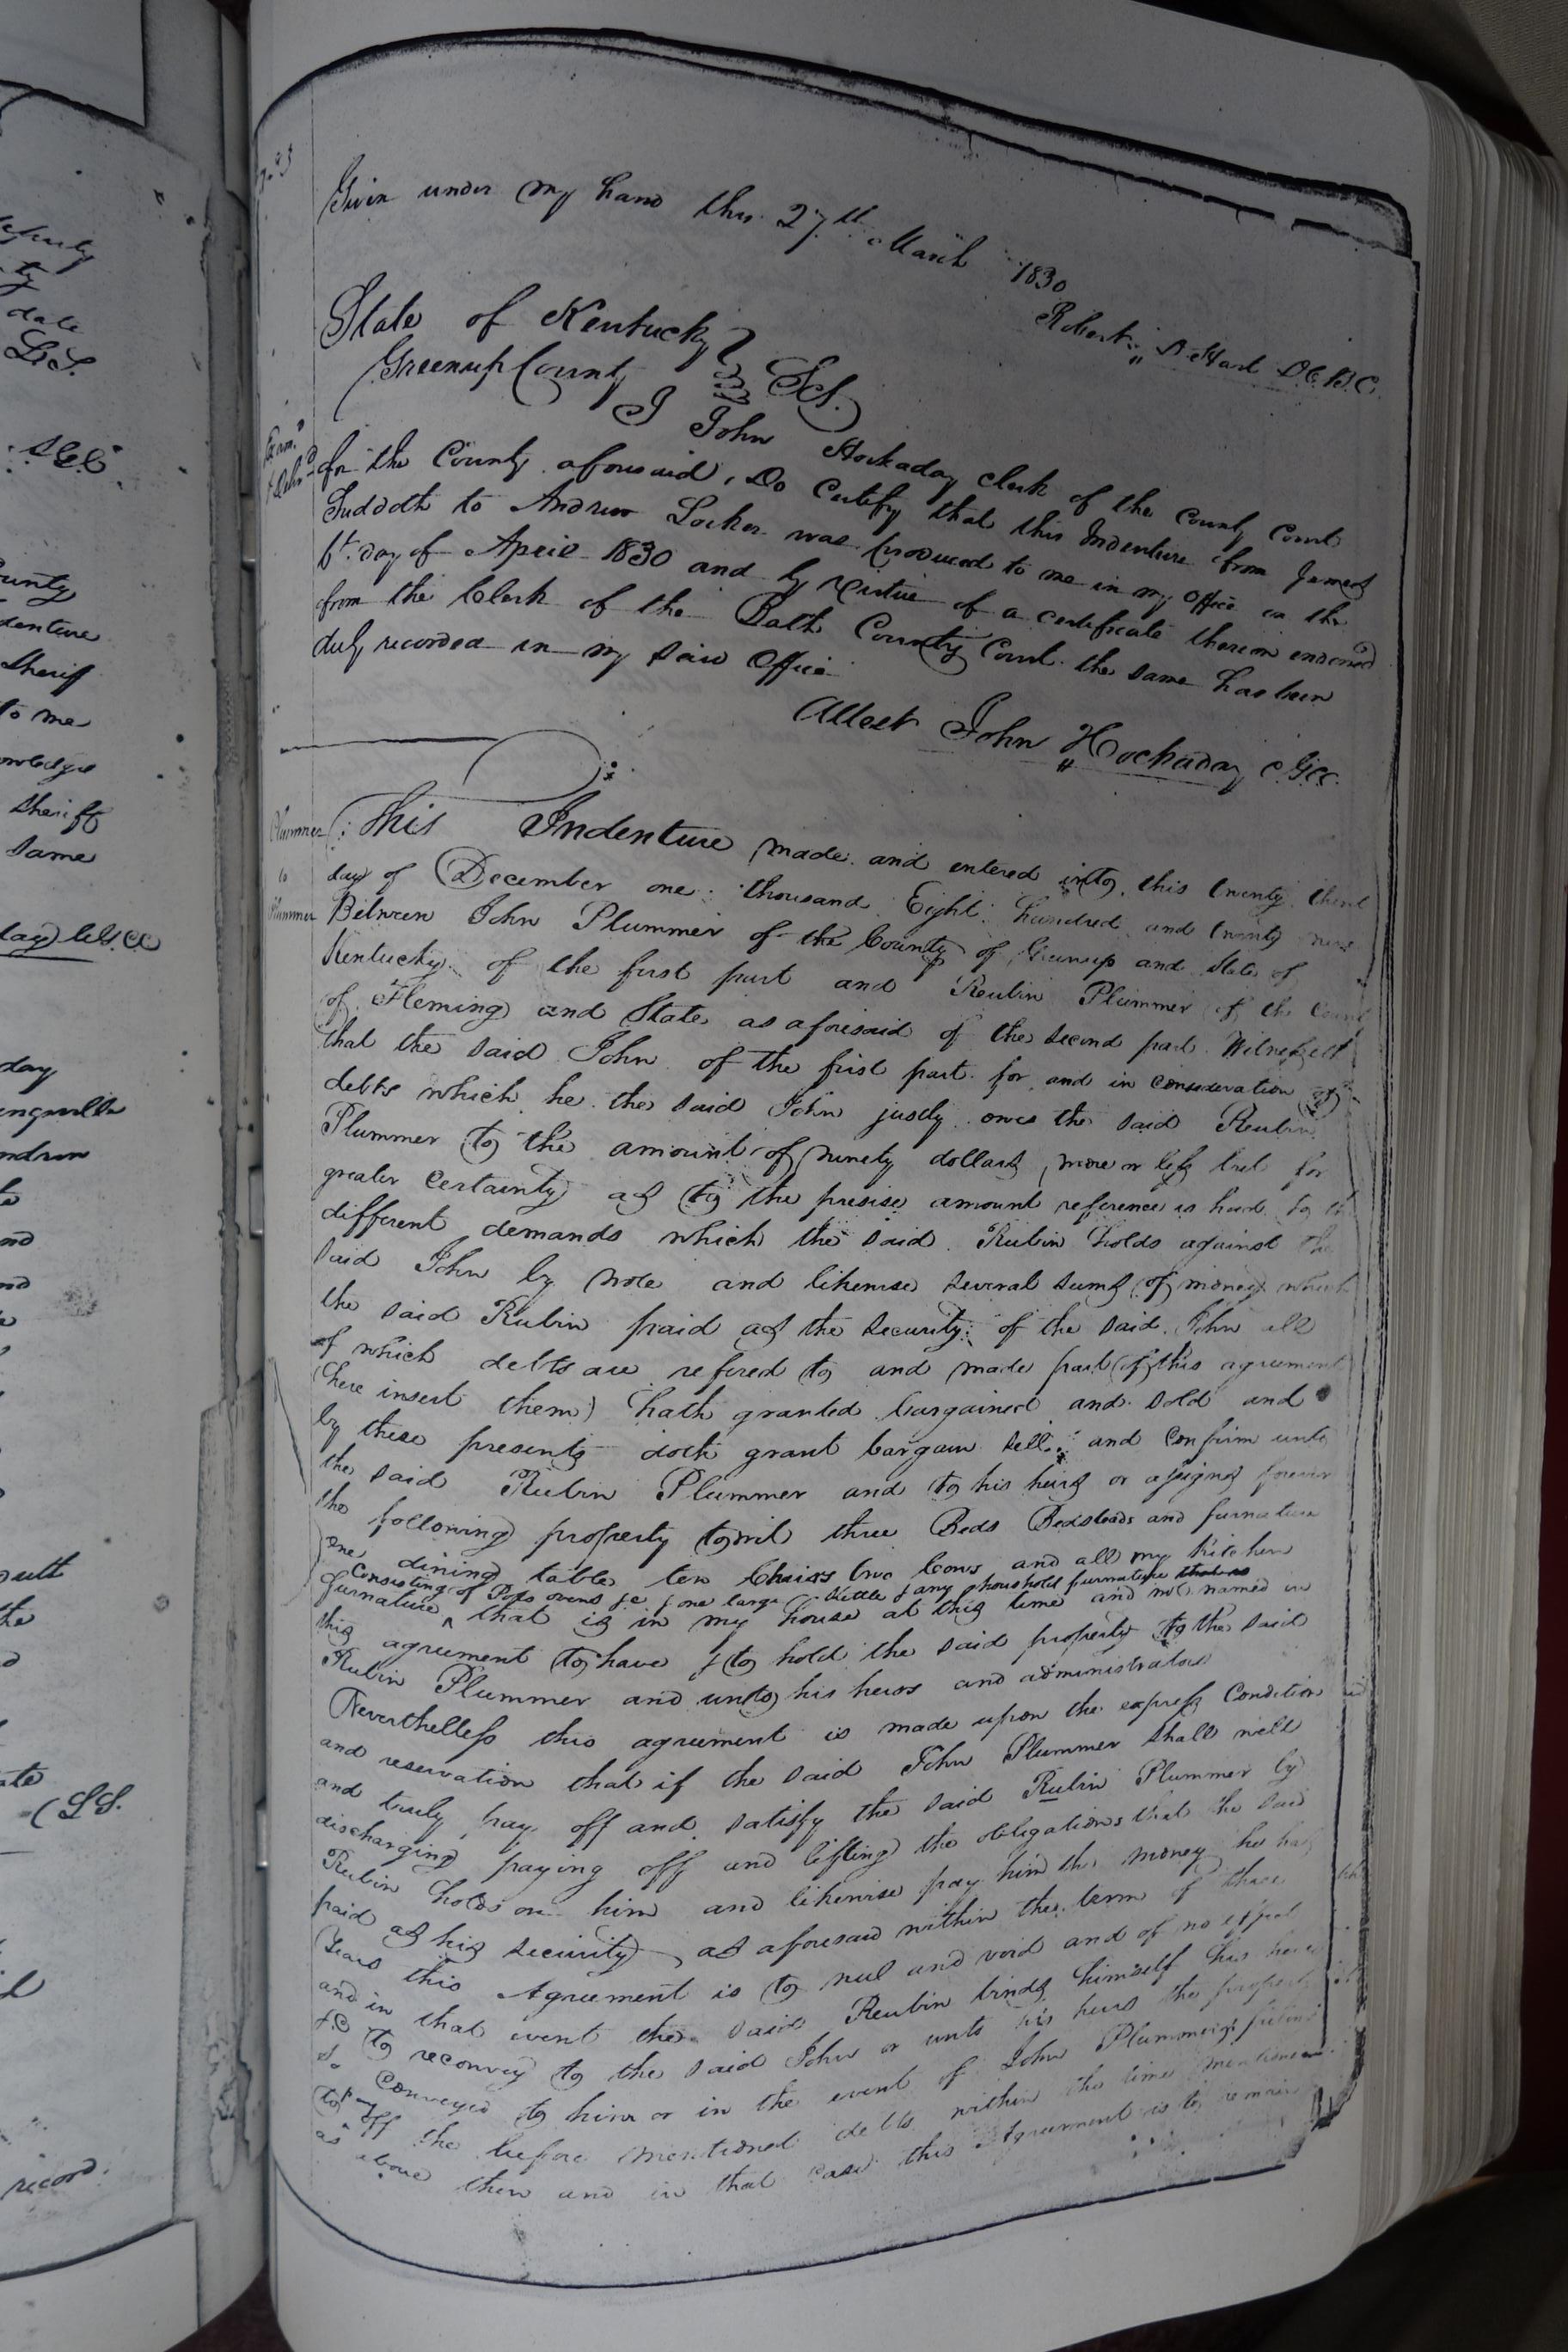 Given under my hand this 27th March 1830
Robert D. Hart D.C.B.C.
State of Kentucky
Greenup County Sct.
I John Hockaday clerk of the County Court
for the County aforesaid, Do Certify that this Indenture from James
Suddoth to Andrew Locker was produced to me in my Office on the
6t. day of April 1830 and by virtue of a certificate thereon endorsed
from the Clerk of the Bath County Court the same has been
duly recorded in my said Office
Attest John Hockaday C.G.C.C.
Plummer
to
Plummer
This Indenture made and entered into this twenty third
day of December one thousand Eight hundred and twenty nine
Between John Plummer of the County of Greenup and State of
Kentucky of the first part and Reubin Plummer of the County
of Fleming and State as aforesaid of the second part Witnesseth
that the said John of the first part for and in consideration of
debts which he the said John justly owes the said Reubin
Plummer to the amount of ninety dollars more or less but for
greater Certainty as to the presise amount reference is had to the
different demands which the said Rubin holds against the
said John by note and likewise several sums of money which
the said Rubin paid as the security of the said John all
of which debts are refered to and made part of this agreement
(here insert them) hath granted bargained and sold and
by these presents doth grant bargain sell and confirm unto
the said Rubin Plummer and to his heirs or assigns forever
the following property towit three Beds Bedsteads and furnature
one dining table ten Chairs two cows and all my kitchen
Consisting of Pots ovens &c & one large Kettle & any houshold furnature that is
furnature ^ that is in my house at this time and not named in
this agreement to have & to hold the said property to the said
Rubin Plummer and unto his heirs and administrators
Neverthelless this agreement is made upon the express Condition
and reservation that if the said John Plummer shall well
and truly pay off and satisfy the said Rubin Plummer by
discharging paying off and lifting the obligations that the said
Rubin holds on him and likewise pay him the money he has
paid as his security as aforesaid within the term of three
years this Agreement is to nul and void and of no effect
and in that event the said Reubin binds himself his heirs
&c to reconvey to the said John or unto his heirs the property
so conveyed to him or in the event of John Plummers failing
to pay off the before mentioned debts within the time mentioned
as above then and in that case this Agreement is to remain